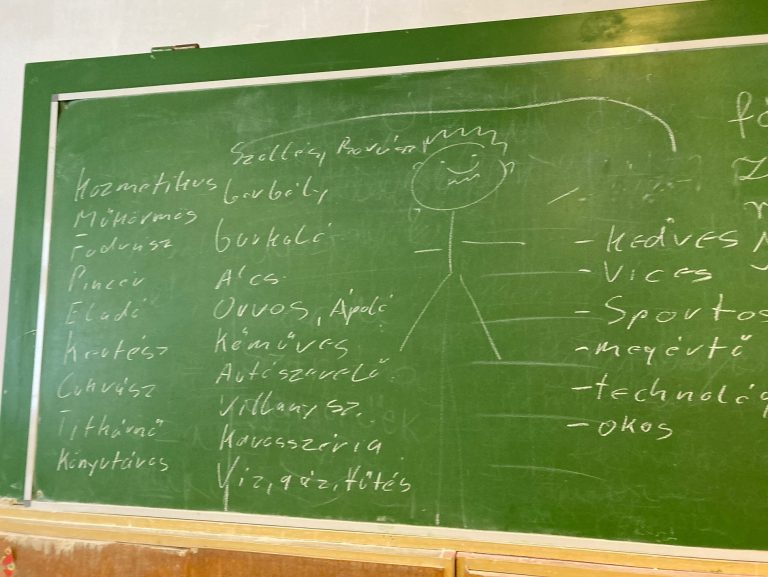 Kozmetikus
Műkörmös
Fodrász
Pincér
Eladó
Kertész
Cukrász
Titkárnő
Könyvtáros
Borbély
burkoló
Ács
Orvos, Ápoló
Kőműves
Autószerelő
Villanysz.
Karosszéria
Víz, gáz, fűtés
- Kedves
- Vicces
- Sportos
- megértő
- technológ
- okos